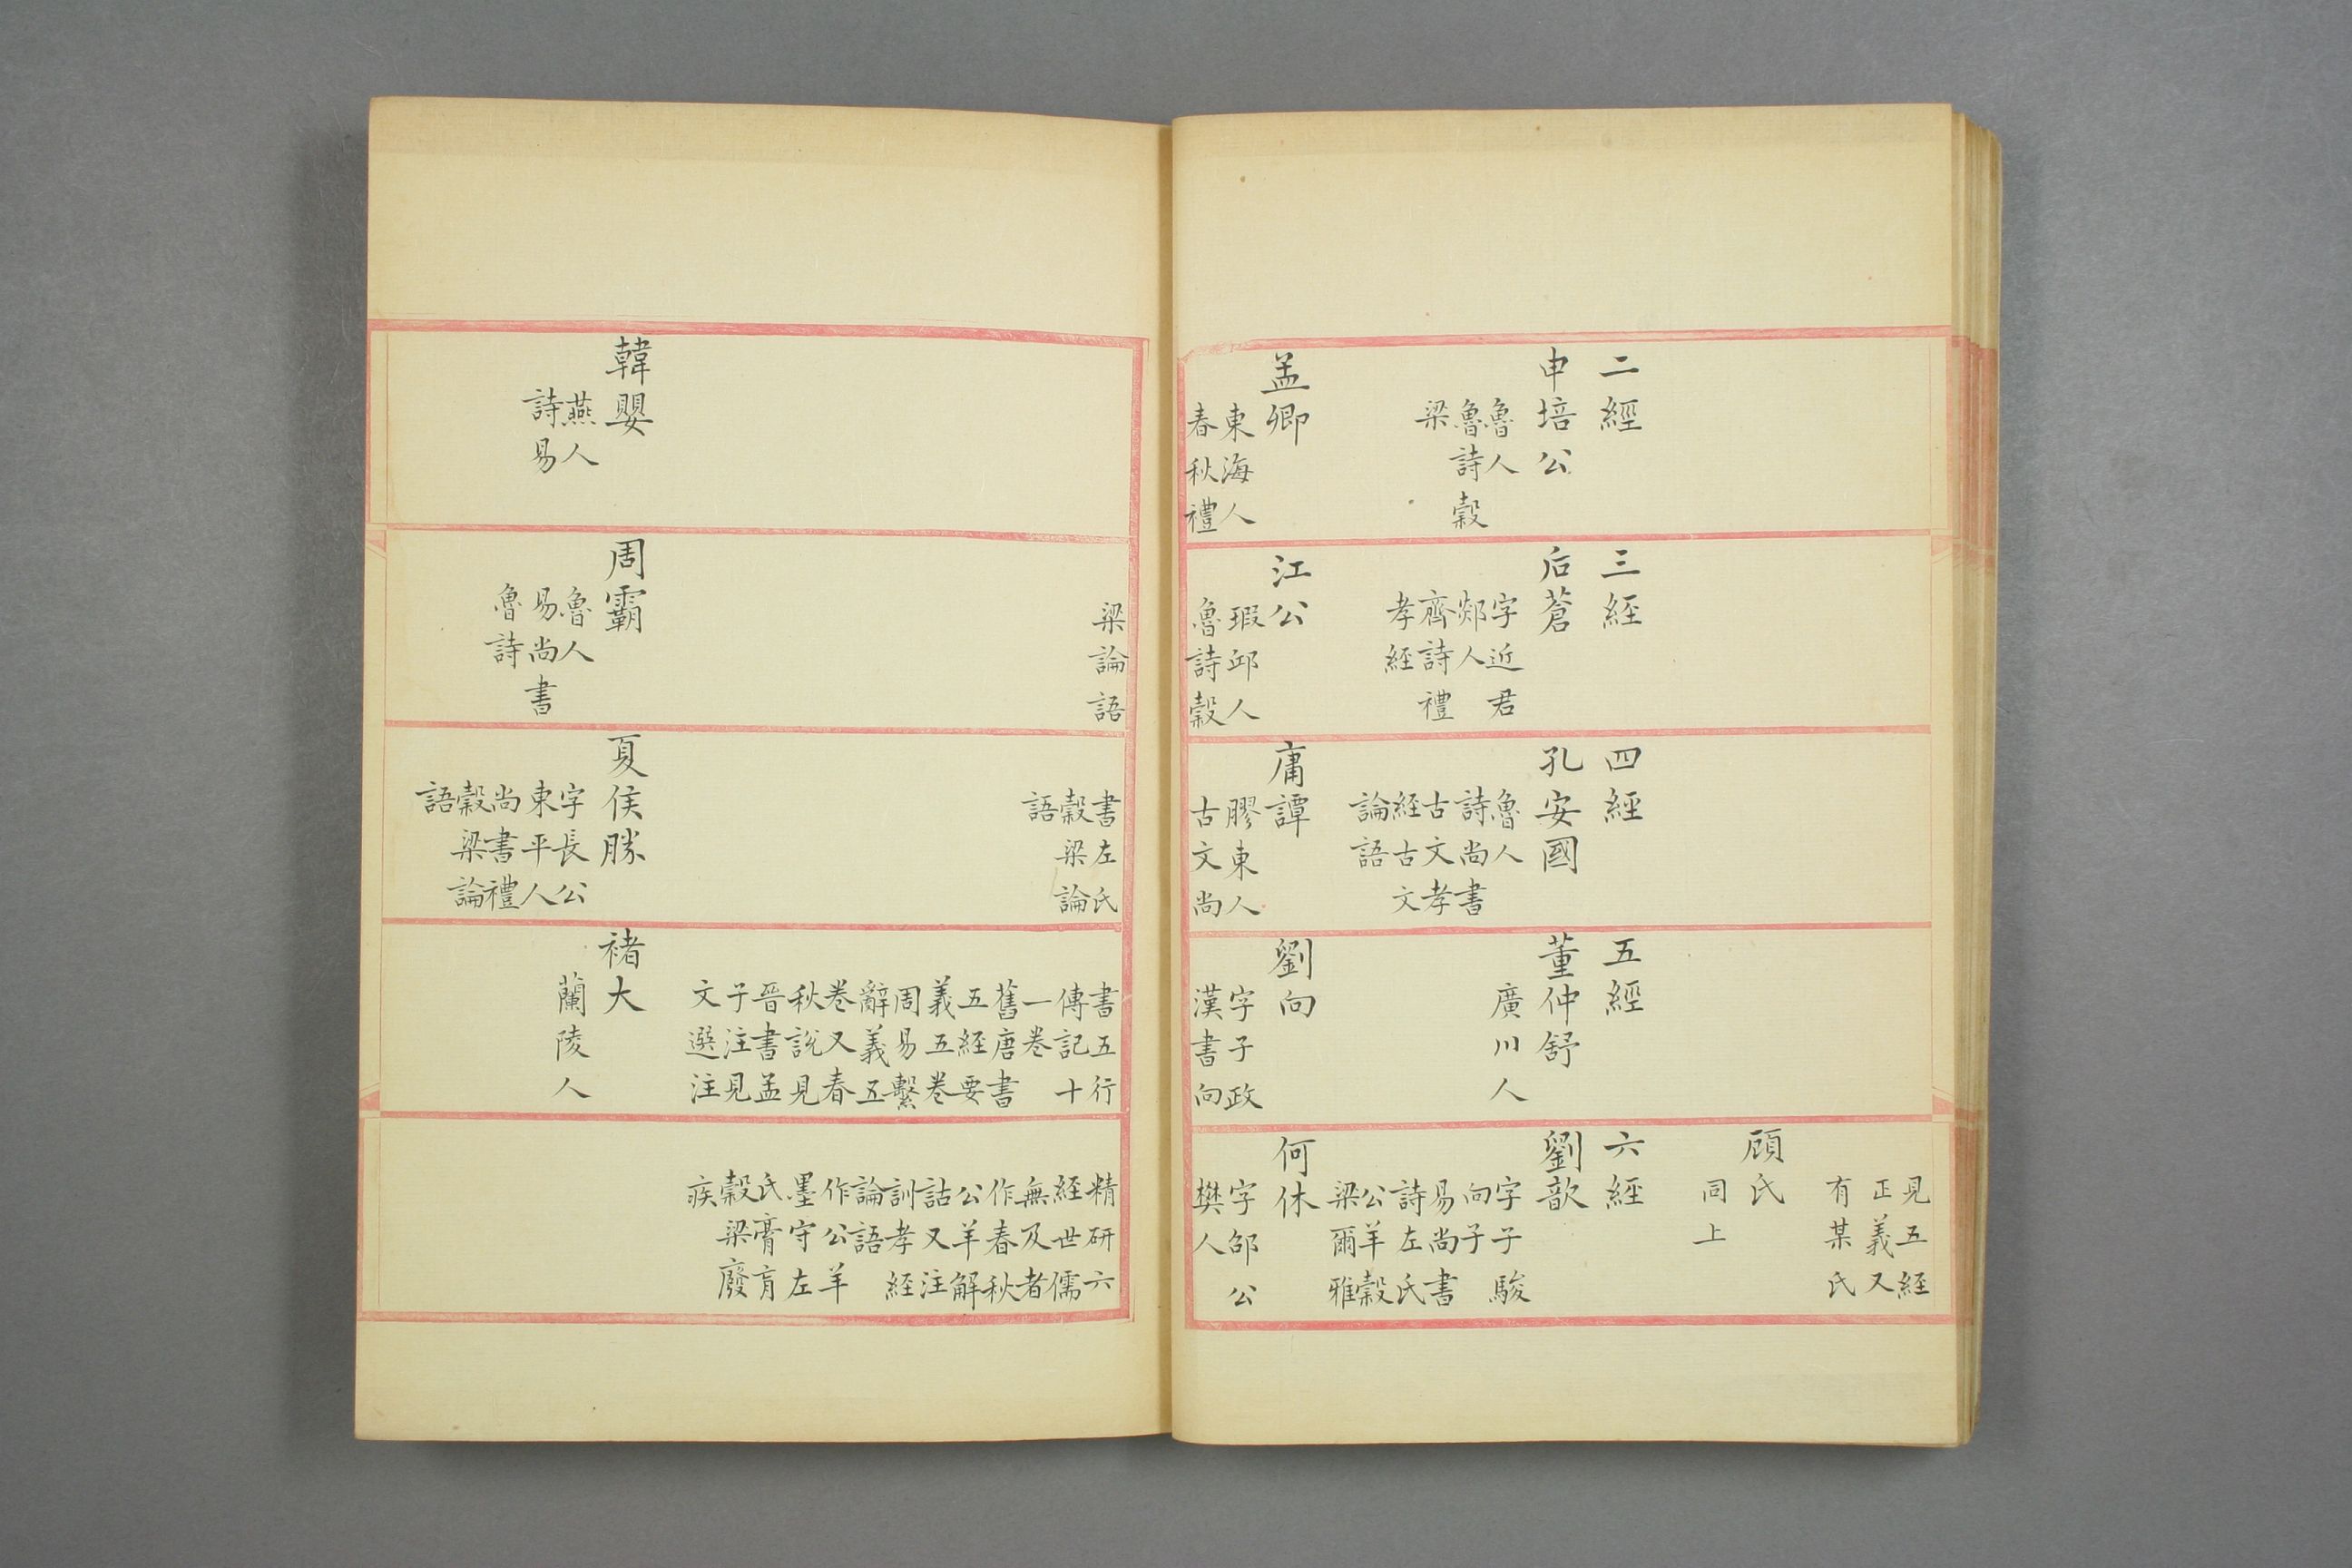 二經
申培公
魯人
魯詩穀
梁
孟卿
東海人
春秋禮
三經
后蒼
字近君
郯人
齊詩禮
孝経
江公
瑕邱人
魯詩穀
四經
孔安國
魯人
詩尚書
古文孝
経古文
論語
庸譚
膠東人
古文尚
五經
董仲舒
廣川人
劉向
字子政
漢書向
見五経
正義又
有某氏
顧氏
同上
六經
劉歆
字子駿
向子
易尚書
詩左氏
公羊穀
梁爾雅
何休
字邵公
樊人
韓嬰
燕人
詩易
梁論語
周霸
魯人
易尚書
魯詩
書左氏
穀梁論
語
夏侯勝
字長公
東平人
尚書禮
穀梁論
語
書五行
傳記十
一卷
舊唐書
五經要
義五卷
周易繫
辭義五
卷又春
秋說見
晉書孟
子注見
文選注
褚大
蘭陵人
精研六
経世儒
無及者
作春秋
公羊解
詁又注
訓孝経
論語
作公羊
墨守左
氏膏肓
穀梁廢
疾